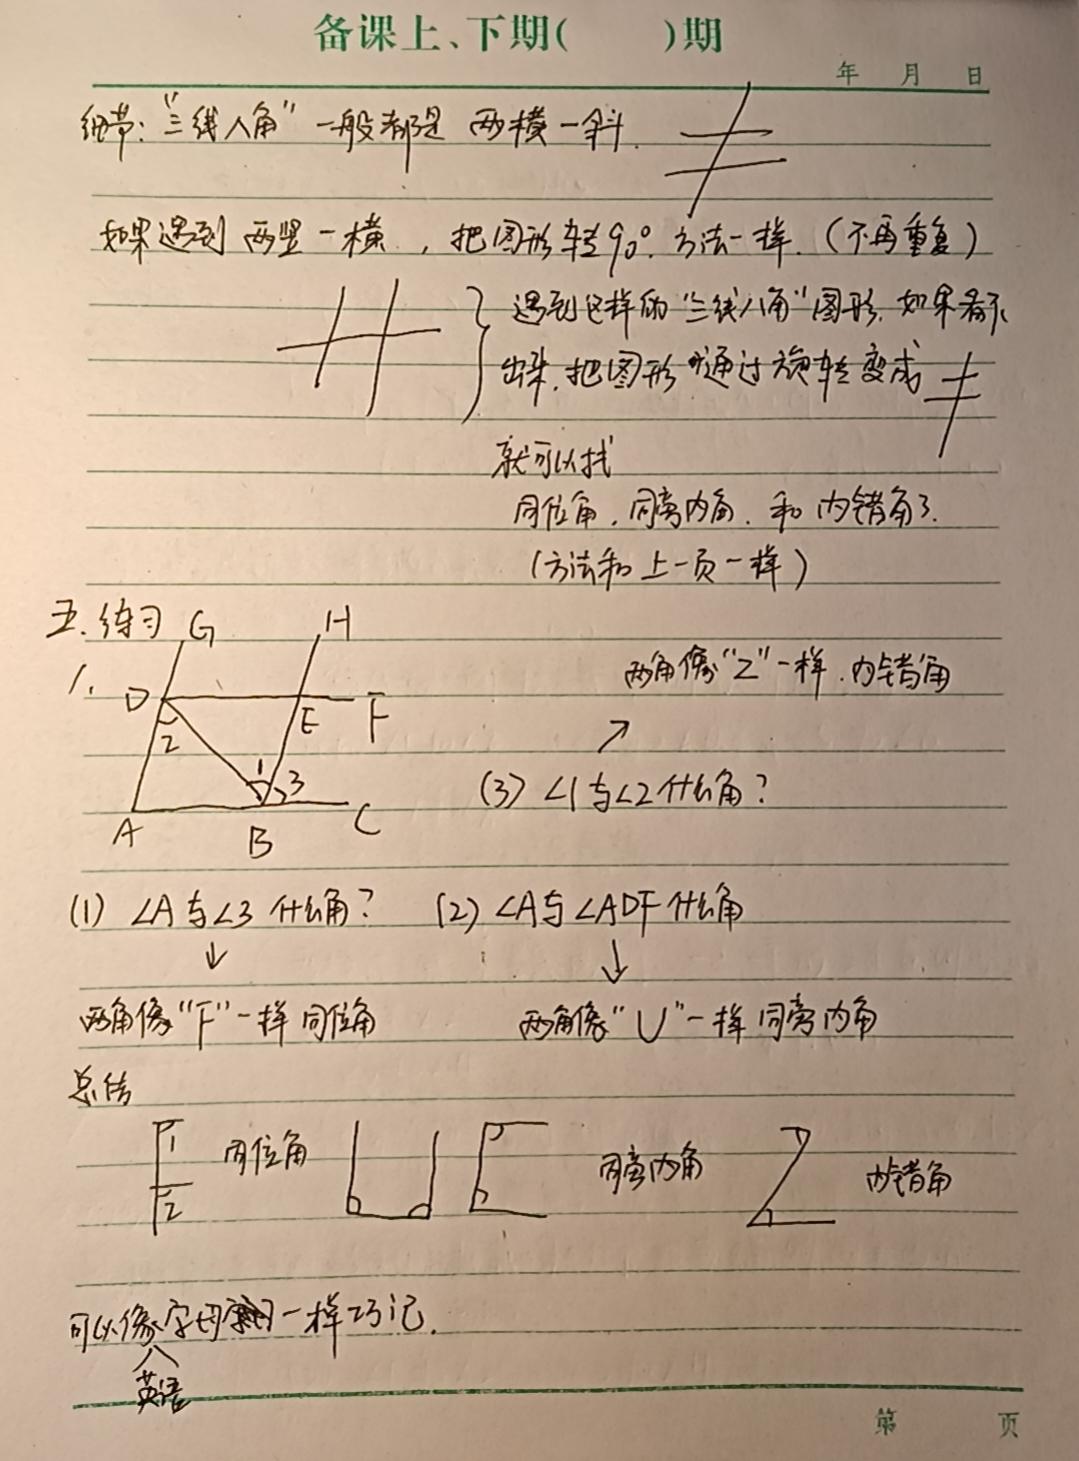 备课上、下期( )期
年 月 日
细节:“三线八角”一般都是 两横一斜.
如果遇到 两竖一横,把图形转90°.方法一样.(不再重复)
遇到这样的“三线八角”图形.如果看不
出来,把图形 通过旋转变成
就可以找
同位角,同旁内角,和 内错角了.
(方法和上一页一样)
五.练习
G H
1. D E F
2 1 3
A B C
两角像“Z”一样.内错角
(3) ∠1与∠2什么角?
(1) ∠A与∠3 什么角? (2) ∠A与∠ADF什么角
两角像“F”一样 同位角 两角像“U”一样 同旁内角
总结
1 2 同位角 同旁内角 内错角
可以像字母一样巧记.
英语
第 页